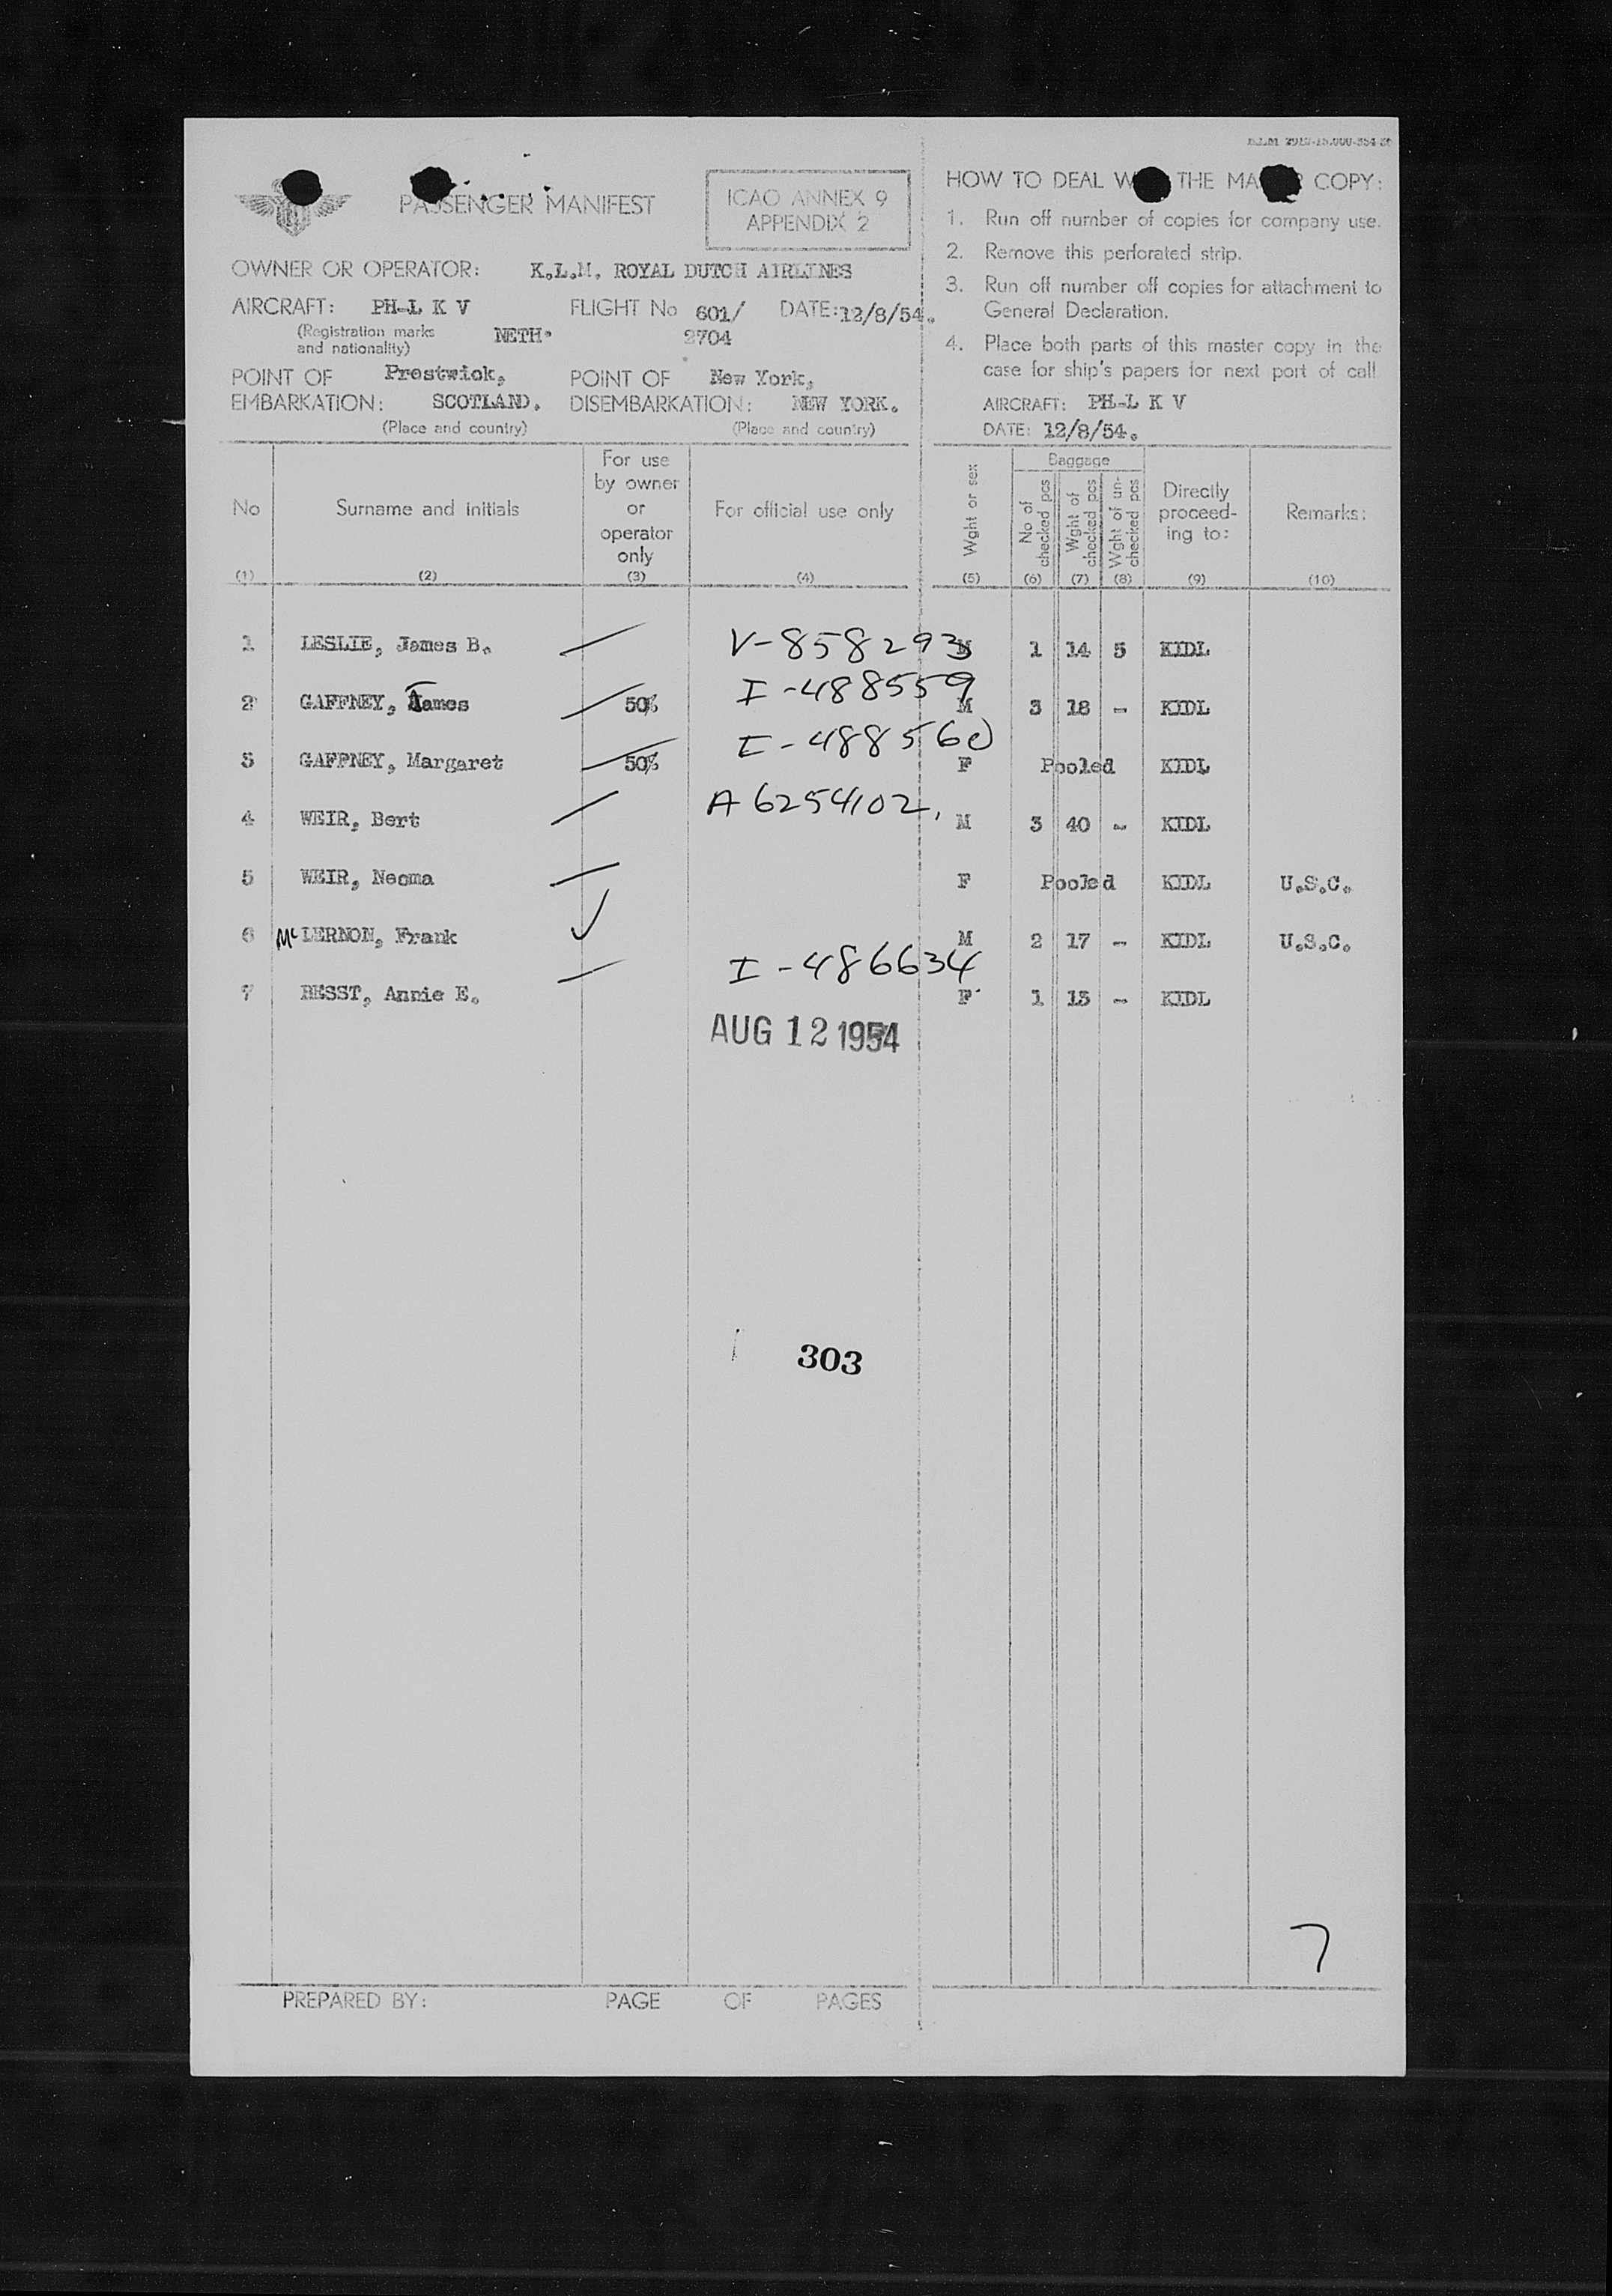 PASSENGER MANIFEST
ICAO ANNEX 9
APPENDIX 2
OWNER OR OPERATOR: K.L.M. ROYAL DUTCH AIRLINES
AIRCRAFT: PH-L K V FLIGHT No 601/ DATE: 12/8/54.
(Registration marks NETH. 2704
and nationality)
POINT OF Prestwick, POINT OF New York,
EMBARKATION: SCOTLAND. DISEMBARKATION: NEW YORK.
(Place and country) (Place and country)
HOW TO DEAL W THE MA COPY:
1. Run off number of copies for company use.
2. Remove this perforated strip.
3. Run off number off copies for attachment to
General Declaration.
4. Place both parts of this master copy in the
case for ship's papers for next port of call
AIRCRAFT: PH-L K V
DATE: 12/8/54.
No Surname and initials For use by owner or operator only For official use only Wght or sex Baggage No of checked pcs Wght of checked pcs Wght of un-checked pcs Directly proceed-ing to: Remarks:
(1) (2) (3) (4) (5) (6) (7) (8) (9) (10)
1 LESLIE, James B. V-858293 M 1 14 5 KIDL
2 GAFFNEY, James 50% I-488559 M 3 18 - KIDL
3 GAFFNEY, Margaret 50% I-488560 F Pooled KIDL
4 WEIR, Bert A6254102, M 3 40 - KIDL
5 WEIR, Neoma F Pooled KIDL U.S.C.
6 Mc LERNON, Frank M 2 17 - KIDL U.S.C.
7 BESST, Annie E. I-486634 F 1 15 - KIDL
AUG 12 1954
303
7
PREPARED BY: PAGE OF PAGES